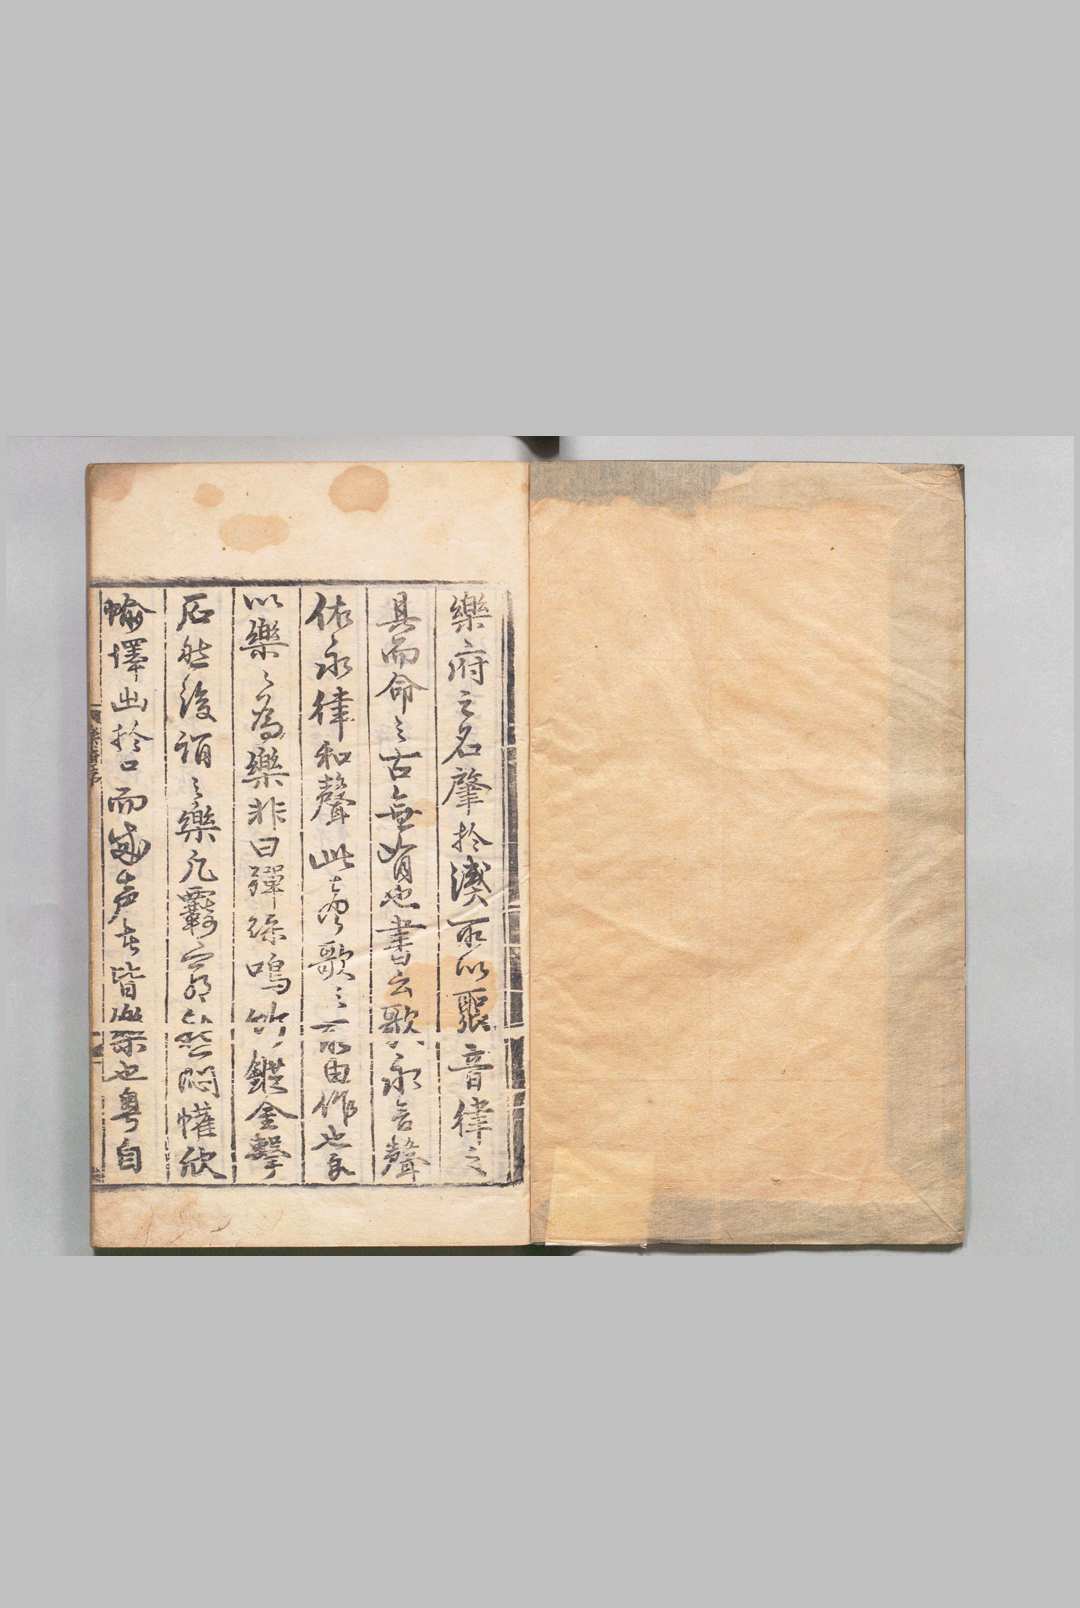 樂府之名肇於漢所以聚音律之
具而命之古無有也書云歌永言聲
依永律和聲此古歌之所由作也
以樂之為樂非曰彈絲鳴竹鏦金擊
石然後謂之樂凡覊窮愁悶懽欣
愉懌出於口而成声者皆樂也粤自